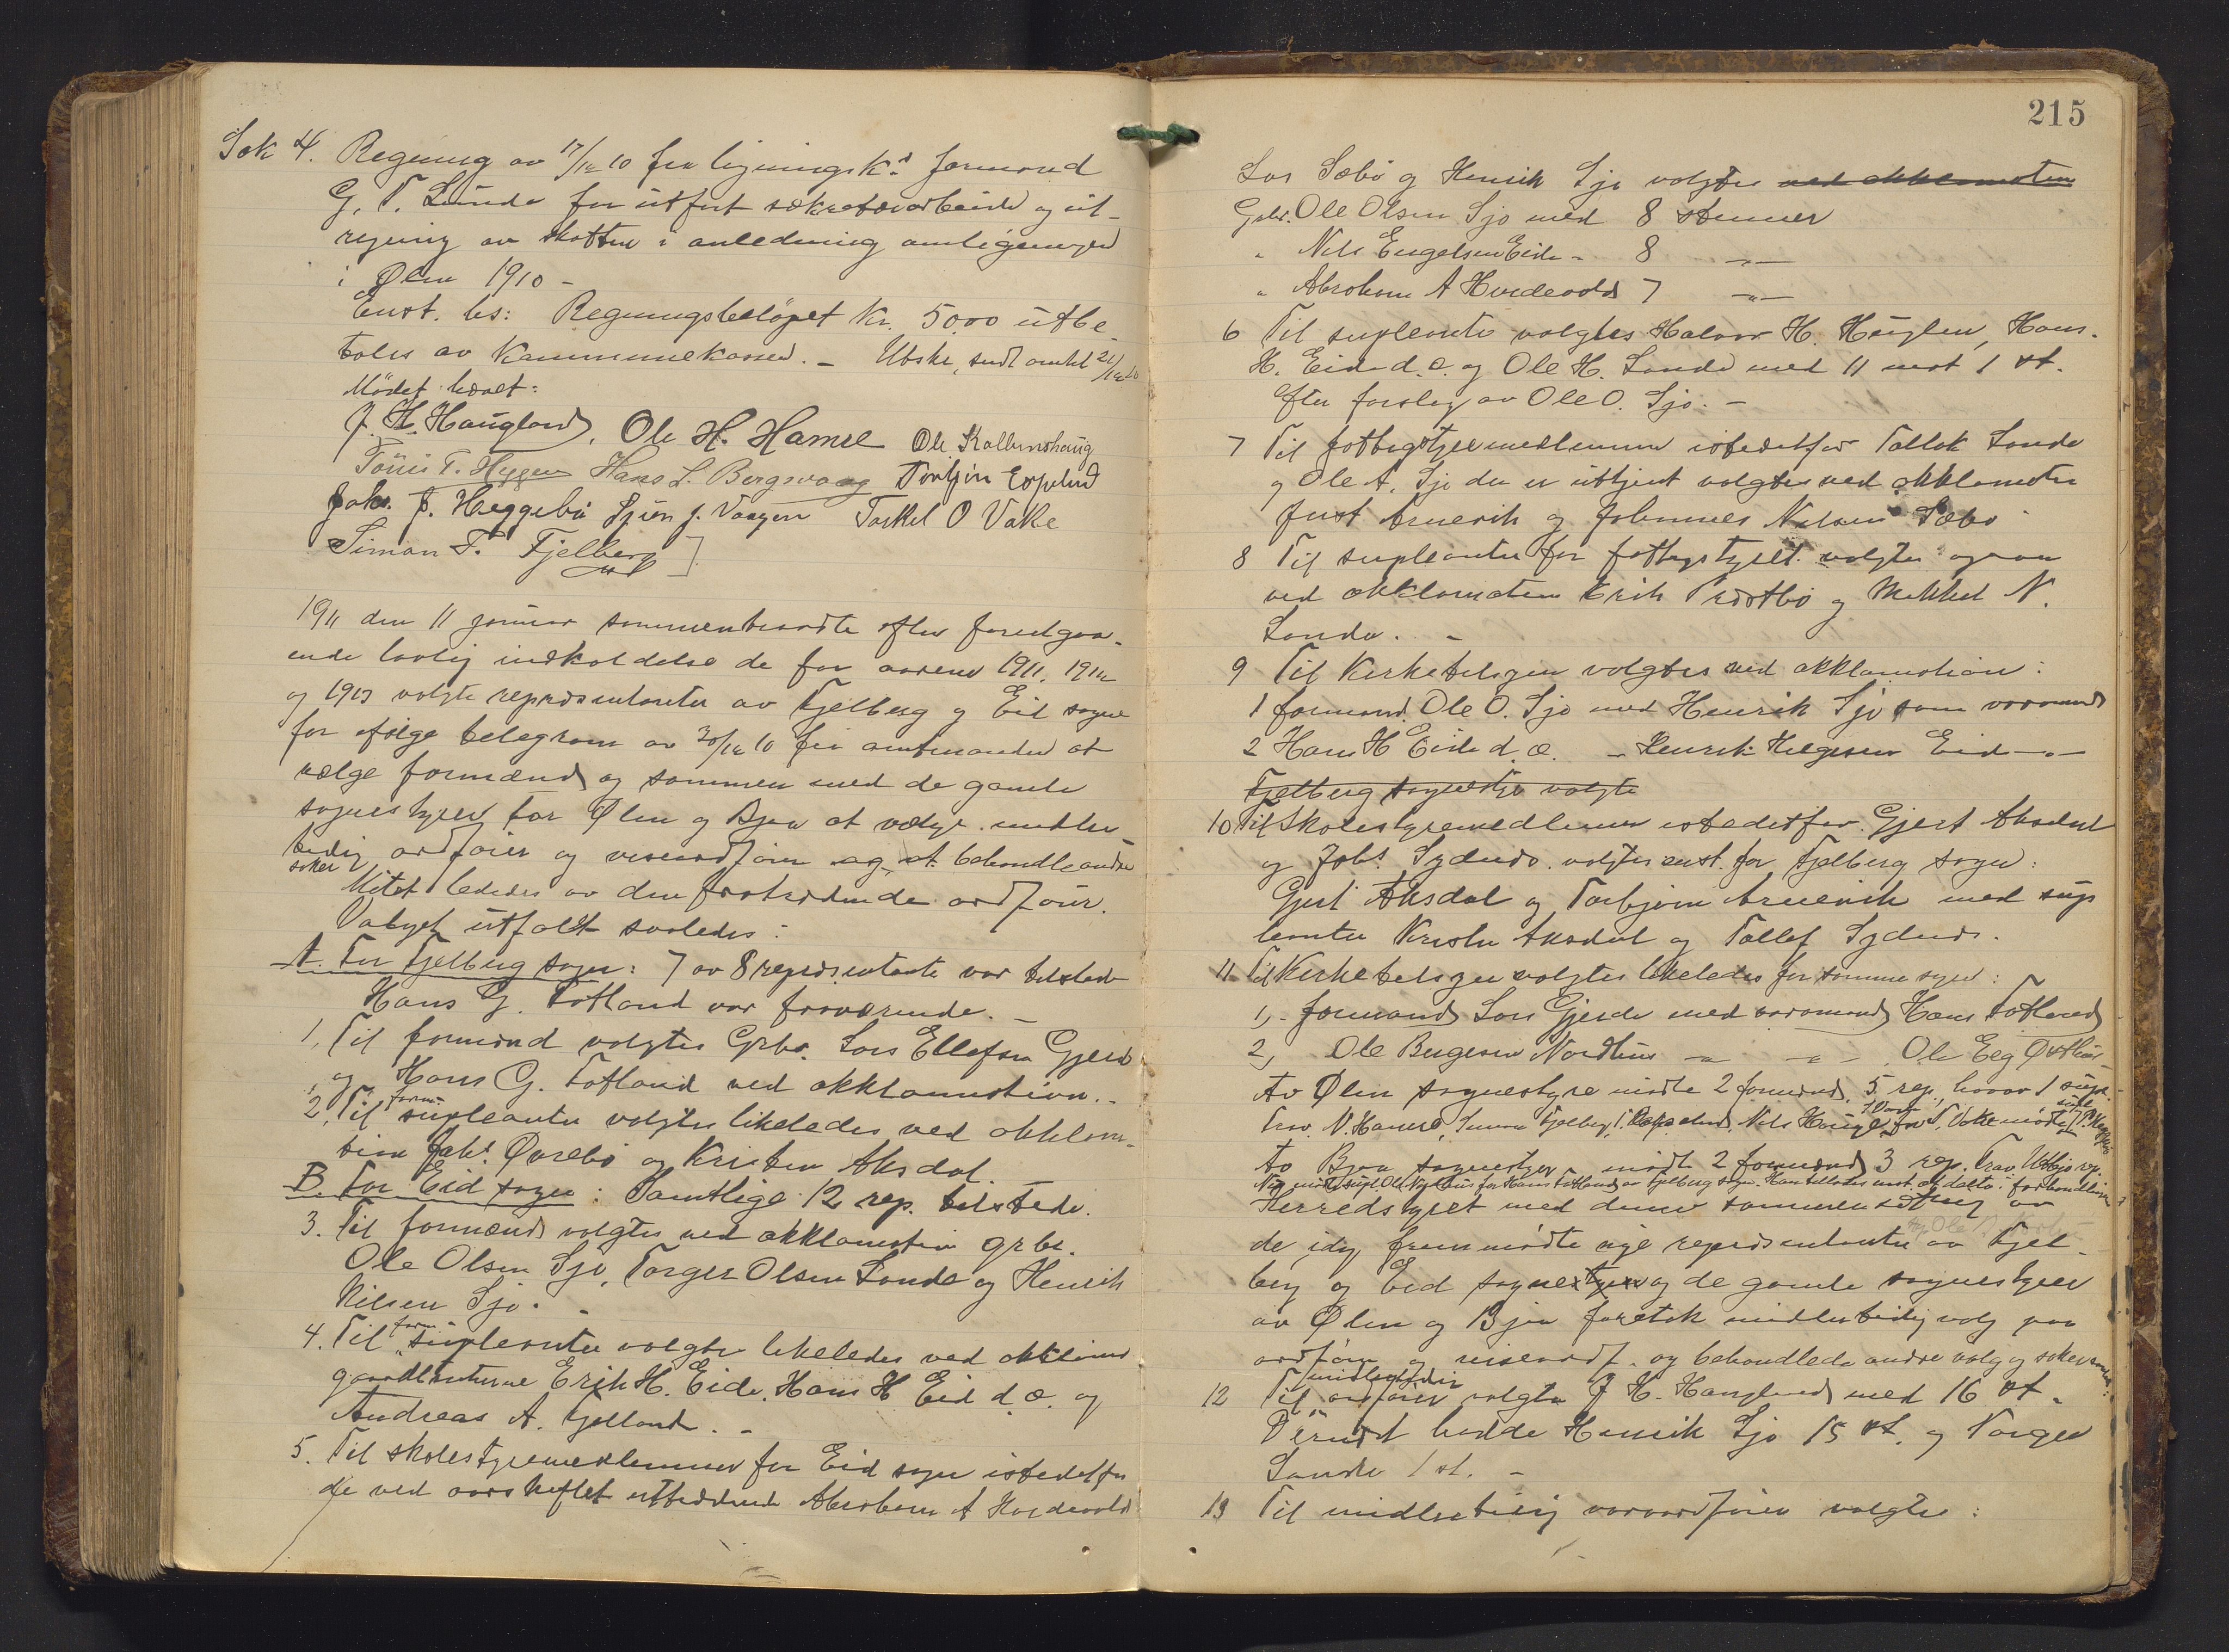 Sak 4. Regning av 17/12 10 fra ligningsk.s formand
G. T. Lunde for utført sekretærarbeide og ut-
regning av skatten i anledning omligningen
i Ølen 1910 -
Enst. bs: Regningsbeløpet Kr. 50.00 utbe-
tales av Kommunekassen. - Utskr. sendt amtet 21/12 10
Mødet hævet:
J. H. Haugland, Ole H. Hamre Ole Kallevshaug
Tönis T. Heggen Hans L. Bergsvaag Torbjørn Espeland
Joh. J. Heggebø Sjur J. Vaagen Torkel O Vake
Simon T. Fjelberg
1911 den 11 januar sammentraadte efter foregaa-
ende lovlig indkaldelse de for aarene 1911, 1912
og 1913 valgte repræsentanter av Fjelberg og Eid sogne
for ifølge telegram av 30/12 10 fra amtmanden at
vælge formænd og sammen med de gamle
sognestyrer for Ølen og Bjoa at vælge midler-
tidig ordfører og viseordfører og at behandle andre
saker
Møtet lededes av den fratrædende ordfører.
Valget utfaldt saaledes:
A. For Fjelberg sogn: 7 av 8 repræsentanter var tilstede
Hans G. Tofland var fraværende. -
1, Til formænd valgtes Grbr. Lars Ellefsen Gjerde
og Hans G. Tofland ved akklamation. -
2, Til form. supleanter valgtes likeledes ved akklama-
tion Joh.s Øvrebø og Kristen Aksdal.
B. For Eid sogn: Samtlige 12 rep. tilstede.
3. Til formænd valgtes ved akklamation grbr.
Ole Olsen Sjo, Torger Olsen Sande og Henrik
Nilsen Sjo. -
4. Til form. supleanter valgtes likeledes ved akklama
gaardbrukerne Erik H. Eide, Hans H Eid d.æ. og
Andreas A. Fjelland. -
5. Til skolestyremedlemmer for Eid sogn istedetfor
de ved aarskiftet uttrædende Abraham A Hvidevold
215
Lars Sæbø og Henrik Sjo valgtes ved akklamation
Grbr. Ole Olsen Sjo med 8 stemmer
" Nils Engelsen Eide - 8 -"-
" Abraham A Hvidevold 7 -"-
6 Til supleanter valgtes Halvor H. Høylen, Hans
H. Eide d.æ. og Ole H. Sande med 11 mot 1 st.
Efter forslag av Ole O. Sjo. -
7 Til fattigstyremedlemmer istedetfor Tollek Sande
og Ole A. Sjo der er uttjent valgtes ved akklamation
Just Arnevik og Johannes Nilsen Sæbø
8 Til supleanter for fattigstyret valgtes ogsaa
ved akklamation Erik Trætbø og Mikkel N.
Sande. -
9 Til Kirketilsyn valgtes ved akklamation:
1 formand. Ole O. Sjo med Henrik Sjo som varamand
2 Hans H Eide d.æ. - Henrik Helgesen Eid -"-
Fjelberg sognestyre valgte
10 Til Skolestyremedlemmer istedetfor Gjert Aksdal
og Joh.s Sydnes valgtes enst. for Fjelberg sogn:
Gjert Aksdal og Torbjørn Arnevik med sup
leanter Kristen Aksdal og Tollef Sydnes.
11 Til Kirketilsyn valgtes likeledes for samme sogn:
1, formand Lars Gjerde med varamand Hans Tofland
2, Ole Bergesen Nordhus -"- -"- Ole Elg Østhus
Av Ølen sognestyre mødte 2 formænd, 5 rep., hvorav 1 supl.
Frav. N. Hamre, Simon Fjelberg, T. Espeland, Nils Hauge
Av Bjoa sognestyre mødte 2 formænd 3 rep. Frav. Utbjo rep.
Herredstyret med denne sammensætning av
de idag fremmødte nye repræsentanter av Fjel-
berg og Eid sognestyre og de gamle sognestyrer
av Ølen og Bjoa foretok midlertidig valg paa
ordfører og viseordf. og behandlede andre valg og saker
12 Til midlertidig ordfører valgtes J H. Haugland med 16 st.
Dernæst hadde Henrik Sjo 15 st. og Torger
Sande 1 st. -
13 Til midlertidig varaordfører valgtes: